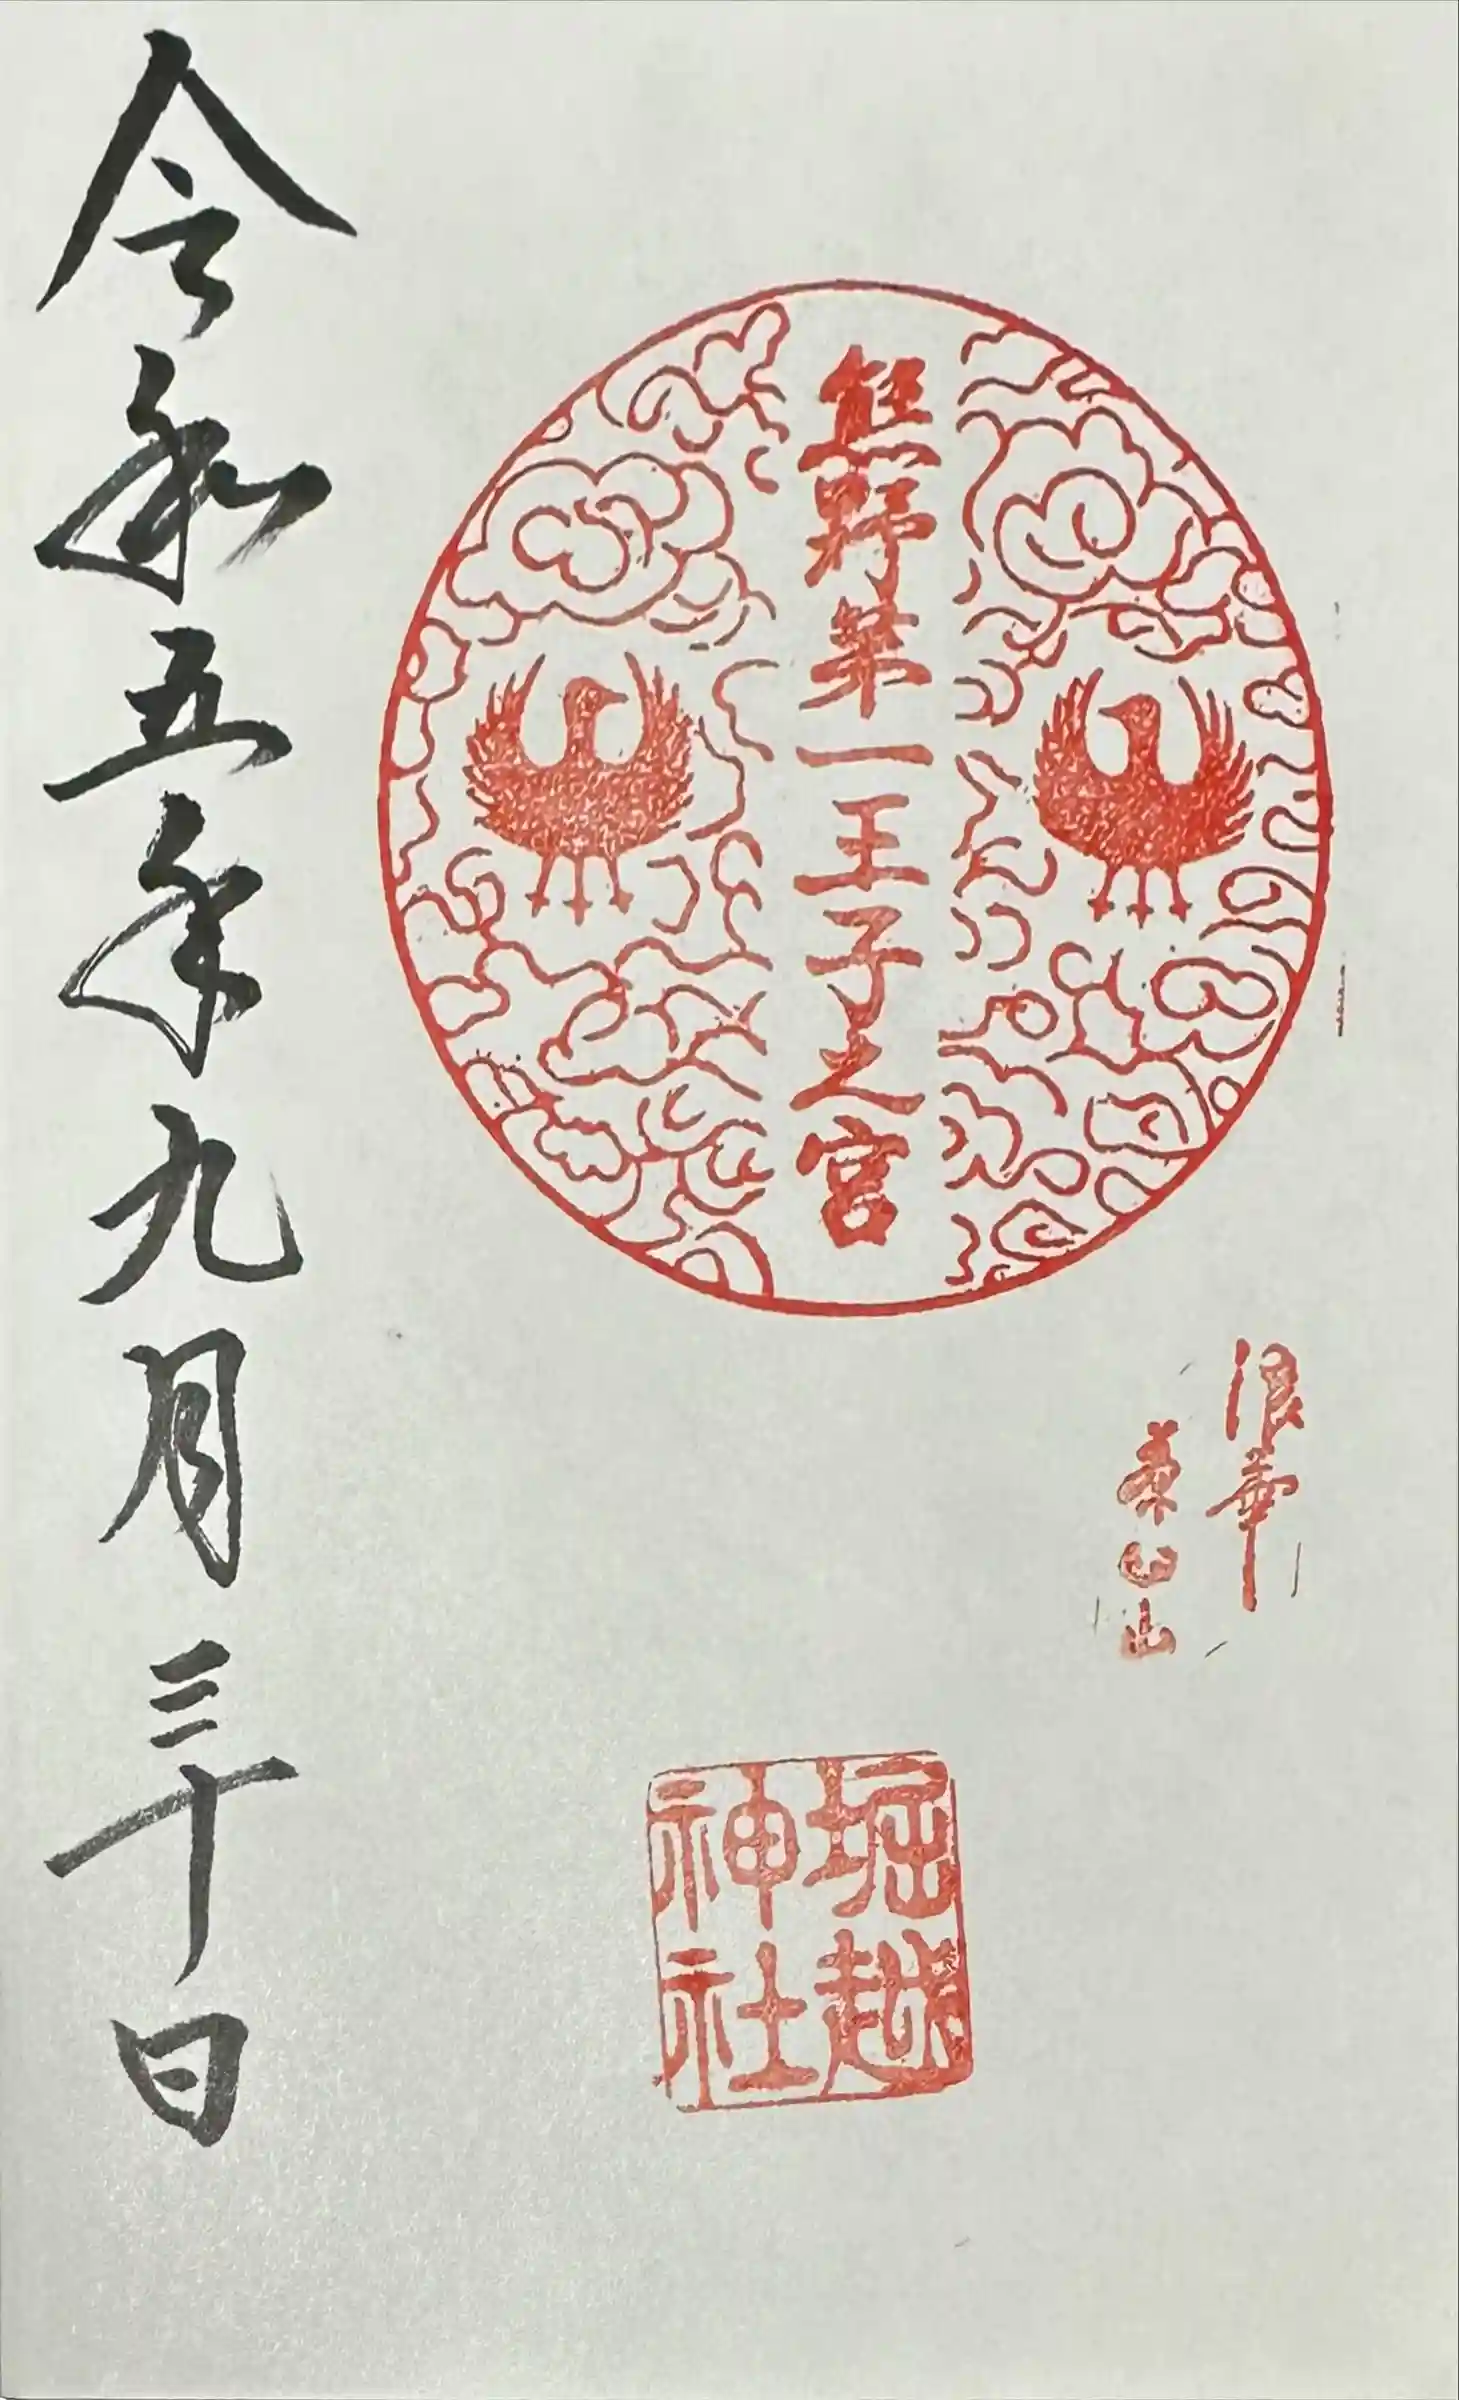 浪華
茶臼山
熊野第一王子之宮
堀越
神社
令和五年九月三十日